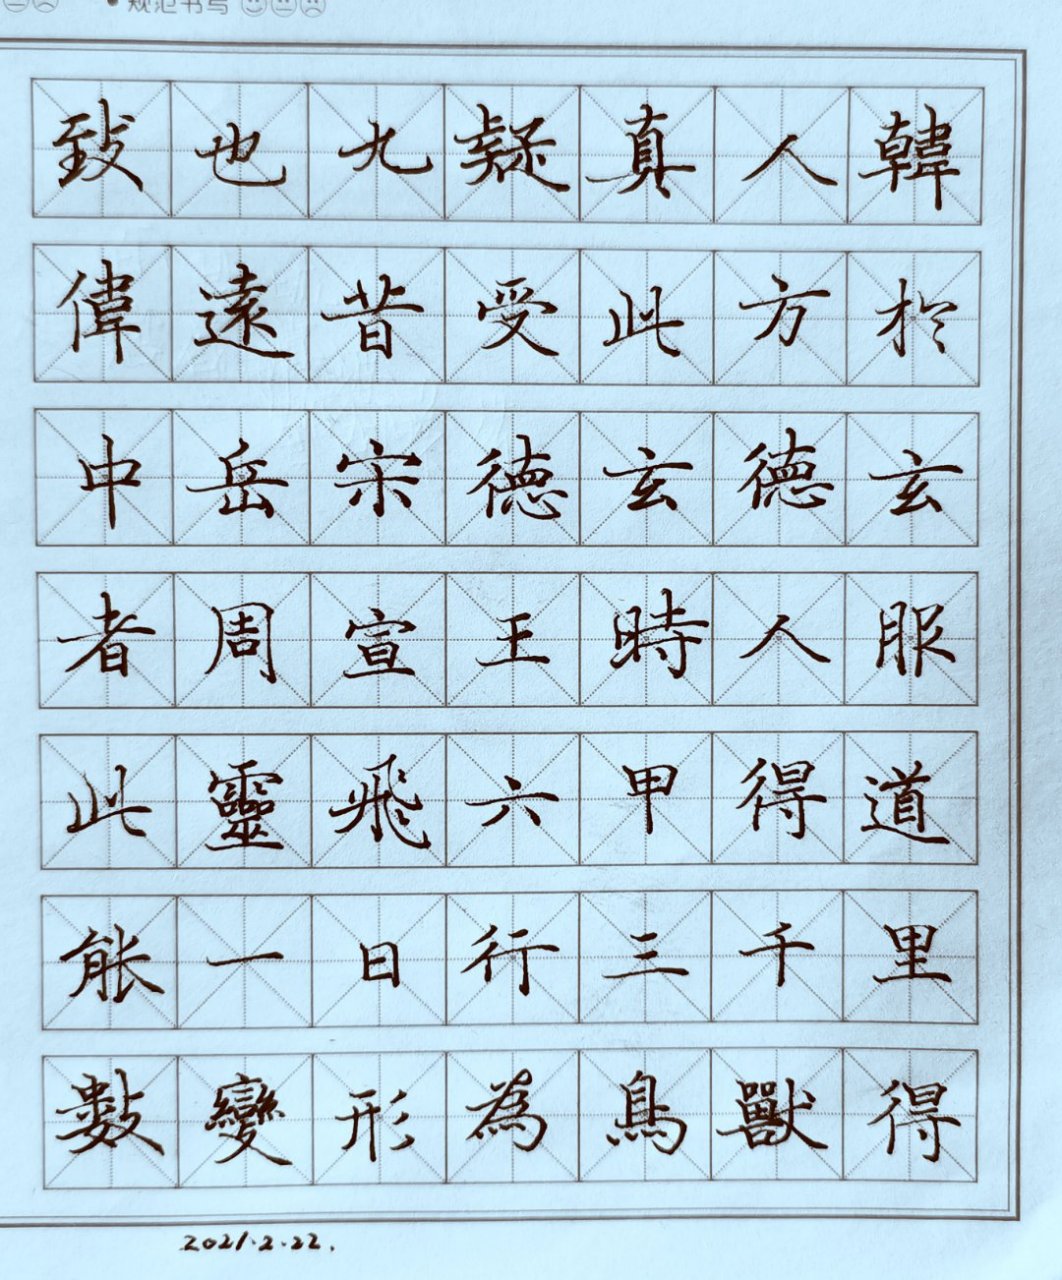 • 规范书写
致也九疑真人韓
偉遠昔受此方於
中岳宋德玄德玄
者周宣王時人服
此靈飛六甲得道
能一日行三千里
數變形為鳥獸得
2021.2.22.